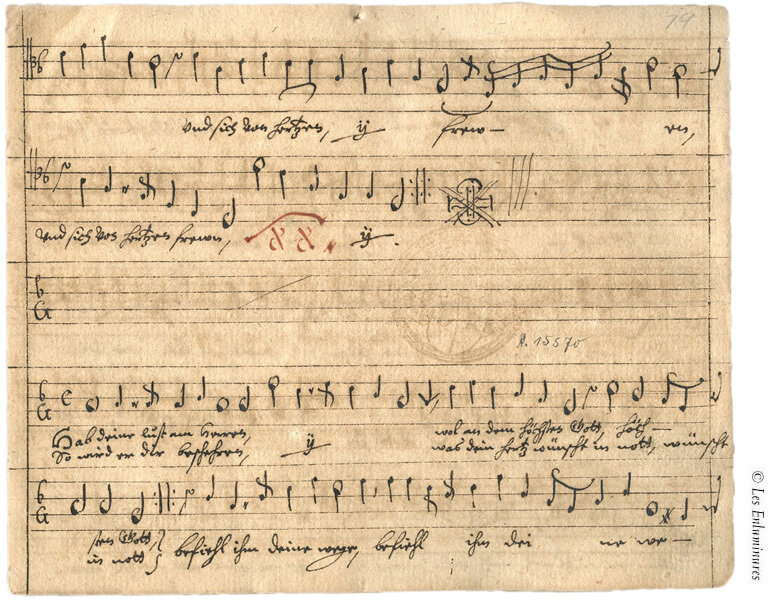 79
vnd sich von hertzen, ij frew– en,
vnd sich von hertzen frewn, ij.
A. 15570
Hab deine lust am Herren, ij wol an dem höchsten Gott, höch–
So wird er dir bescheren, was dein hertz wünscht in nott, wünscht
sten Gott,
in nott
befiehl ihm deine wege, befiehl ihm dei ne we–
© Les Enluminures